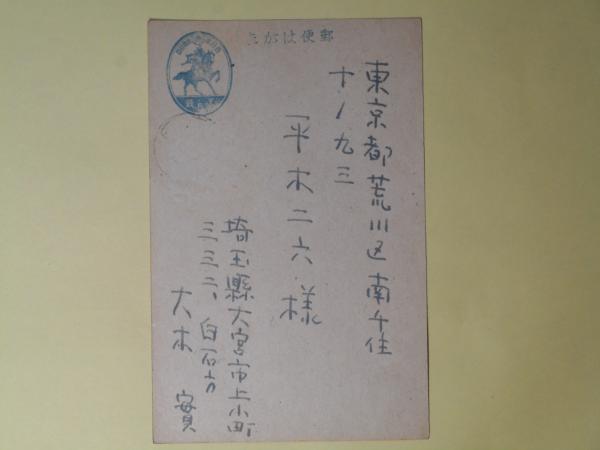 郵便はがき
東京都荒川区南千住
十ノ九三
平木二六様
埼玉縣大宮市上小町
三三二、白石方
大木實